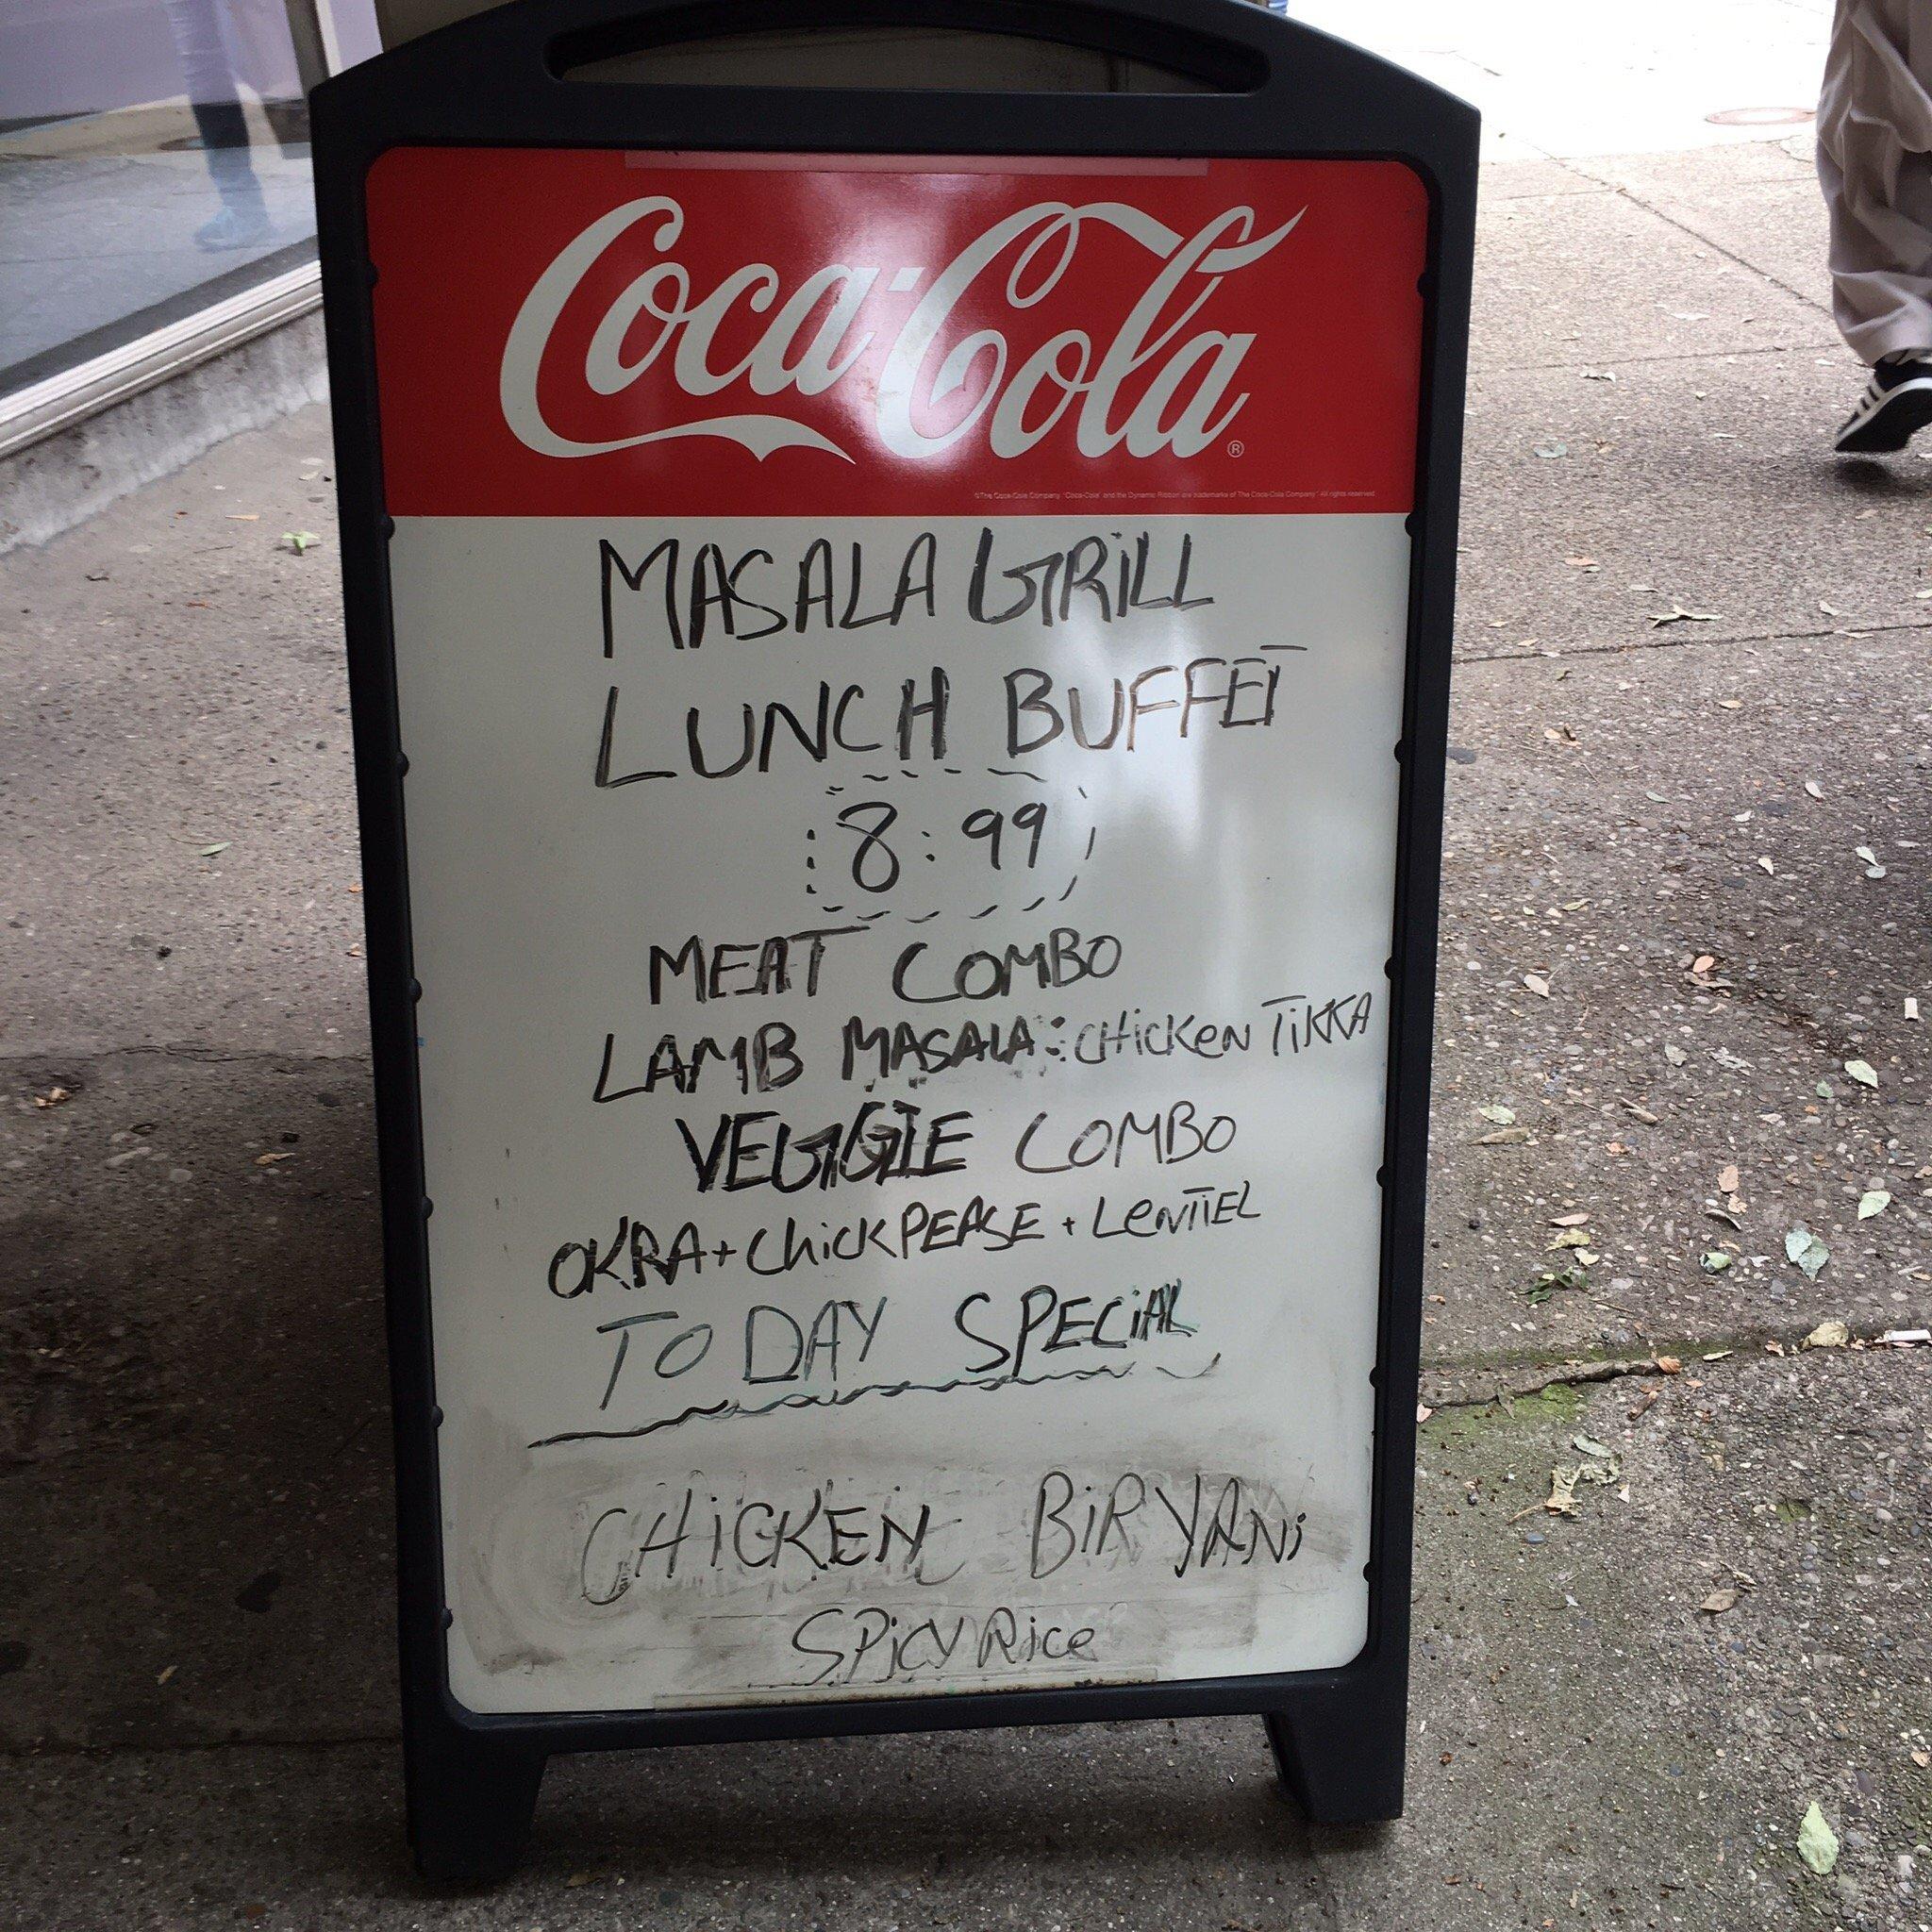 Coca-Cola®
©The Coca-Cola Company. "Coca-Cola" and the Dynamic Ribbon are trademarks of The Coca-Cola Company. All rights reserved
MASALA GRiLL
LUNCH BUFFET
8:99
MEAT COMBO
LAMB MASALA: CHiCKeN TiKKA
VEGGIE COMBO
OKRA+ChiCKPEASE+LeNTiEL
TO DAY SPECiAL
CHiCKEN BiRYANi
SPiCY Rice